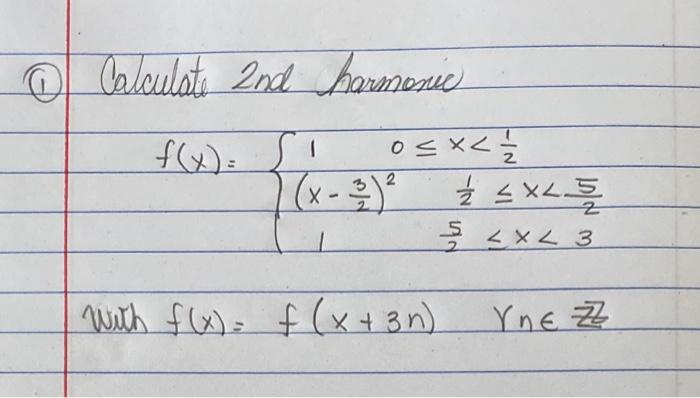 ① Calculate 2nd harmonic
f(x) = { 1 0 ≤ x < 1/2
(x - 3/2)² 1/2 ≤ x < 5/2
1 5/2 ≤ x < 3
With f(x) = f(x + 3n) ∀n ∈ ℤ